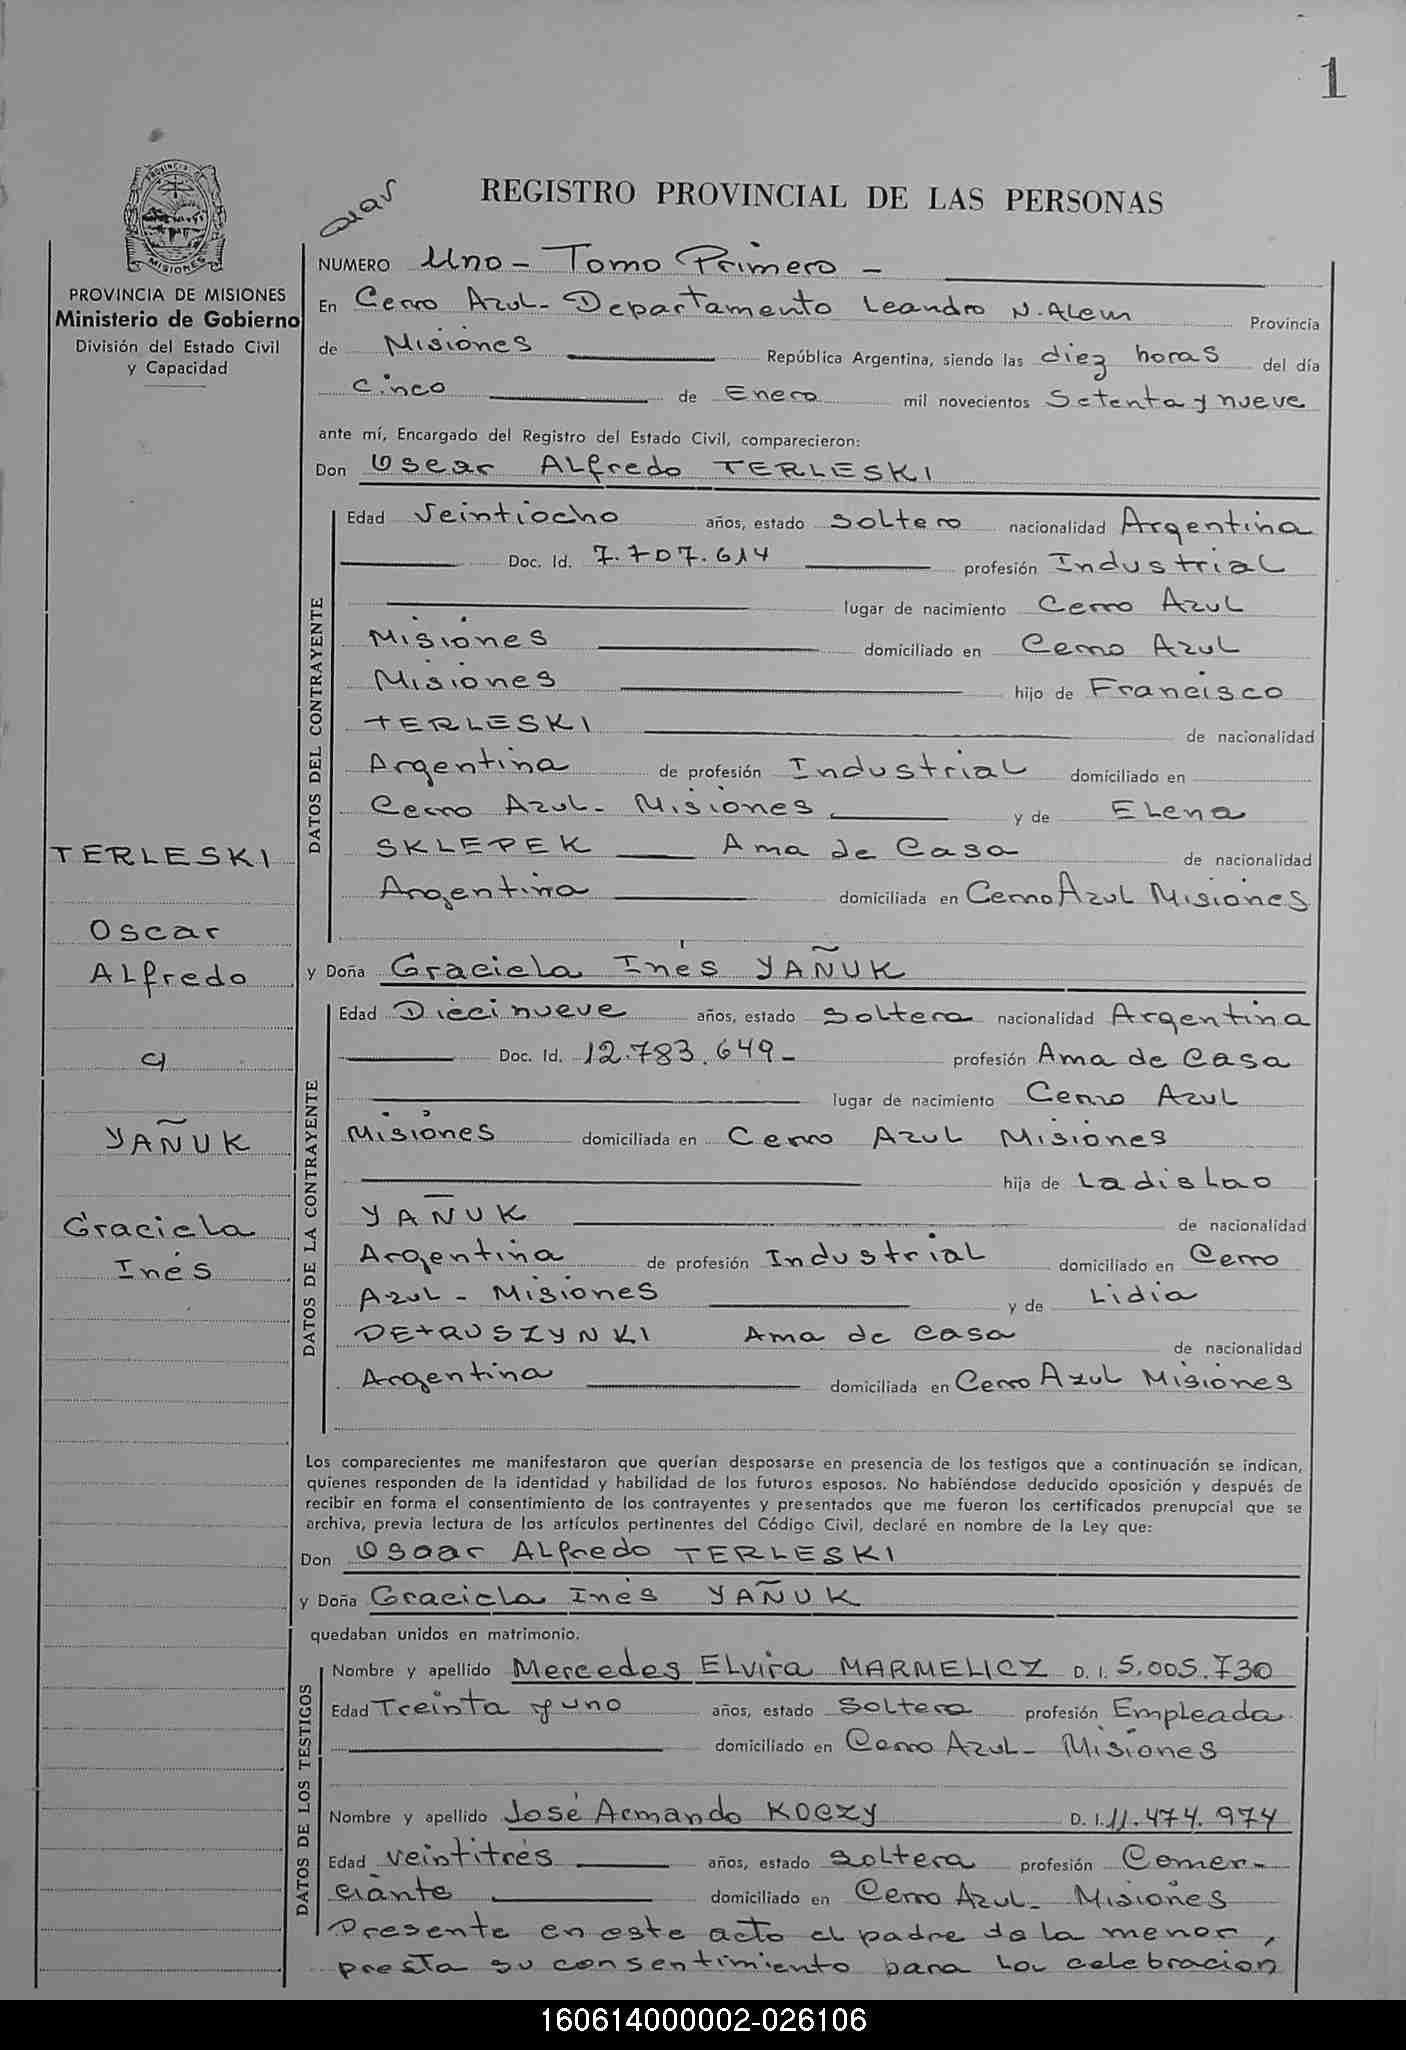 1
REGISTRO PROVINCIAL DE LAS PERSONAS
PROVINCIA DE MISIONES
PROVINCIA DE MISIONES
Ministerio de Gobierno
División del Estado Civil
y Capacidad
TERLESKI
Oscar
Alfredo
y
YAÑUK
Graciela
Inés
NUMERO Uno - Tomo Primero -
En Cerro Azul - Departamento Leandro N. Alem Provincia
de Misiones República Argentina, siendo las diez horas del día
Cinco de Enero mil novecientos Setenta y nueve
ante mí, Encargado del Registro del Estado Civil, comparecieron:
Don Oscar Alfredo TERLESKI
DATOS DEL CONTRAYENTE
Edad Veintiocho años, estado Soltero nacionalidad Argentina
Doc. Id. 7.707.614 profesión Industrial
lugar de nacimiento Cerro Azul
Misiones domiciliado en Cerro Azul
Misiones hijo de Francisco
TERLESKI de nacionalidad
Argentina de profesión Industrial domiciliado en
Cerro Azul - Misiones y de Elena
SKLEPEK Ama de Casa de nacionalidad
Argentina domiciliada en Cerro Azul Misiones
y Doña Graciela Inés YAÑUK
DATOS DE LA CONTRAYENTE
Edad Diecinueve años, estado Soltera nacionalidad Argentina
Doc. Id. 12.783.649 - profesión Ama de Casa
lugar de nacimiento Cerro Azul
Misiones domiciliada en Cerro Azul Misiones
hija de Ladislao
YAÑUK de nacionalidad
Argentina de profesión Industrial domiciliado en Cerro
Azul - Misiones y de Lidia
PETRUSZYNKI Ama de Casa de nacionalidad
Argentina domiciliada en Cerro Azul Misiones
Los comparecientes me manifestaron que querían desposarse en presencia de los testigos que a continuación se indican,
quienes responden de la identidad y habilidad de los futuros esposos. No habiéndose deducido oposición y después de
recibir en forma el consentimiento de los contrayentes y presentados que me fueron los certificados prenupcial que se
archiva, previa lectura de los artículos pertinentes del Código Civil, declaré en nombre de la Ley que:
Don Oscar Alfredo TERLESKI
y Doña Graciela Inés YAÑUK
quedaban unidos en matrimonio.
DATOS DE LOS TESTIGOS
Nombre y apellido Mercedes Elvira MARMELICZ D. I. 5.005.730
Edad Treinta y uno años, estado Soltera profesión Empleada
domiciliado en Cerro Azul - Misiones
Nombre y apellido José Armando KOCZY D. I. 11.474.974
Edad veintitrés años, estado soltera profesión Comer-
ciante domiciliado en Cerro Azul - Misiones
Presente en este acto el padre de la menor,
presta su consentimiento para la celebracion
160614000002-026106